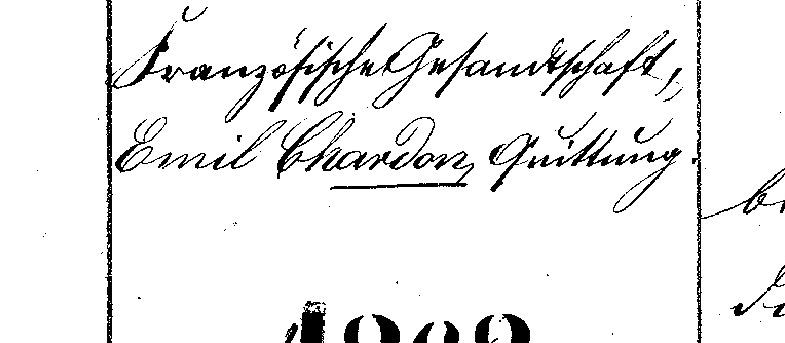 Französische Gesandtschaft,
Emil Chardon, Quittung.